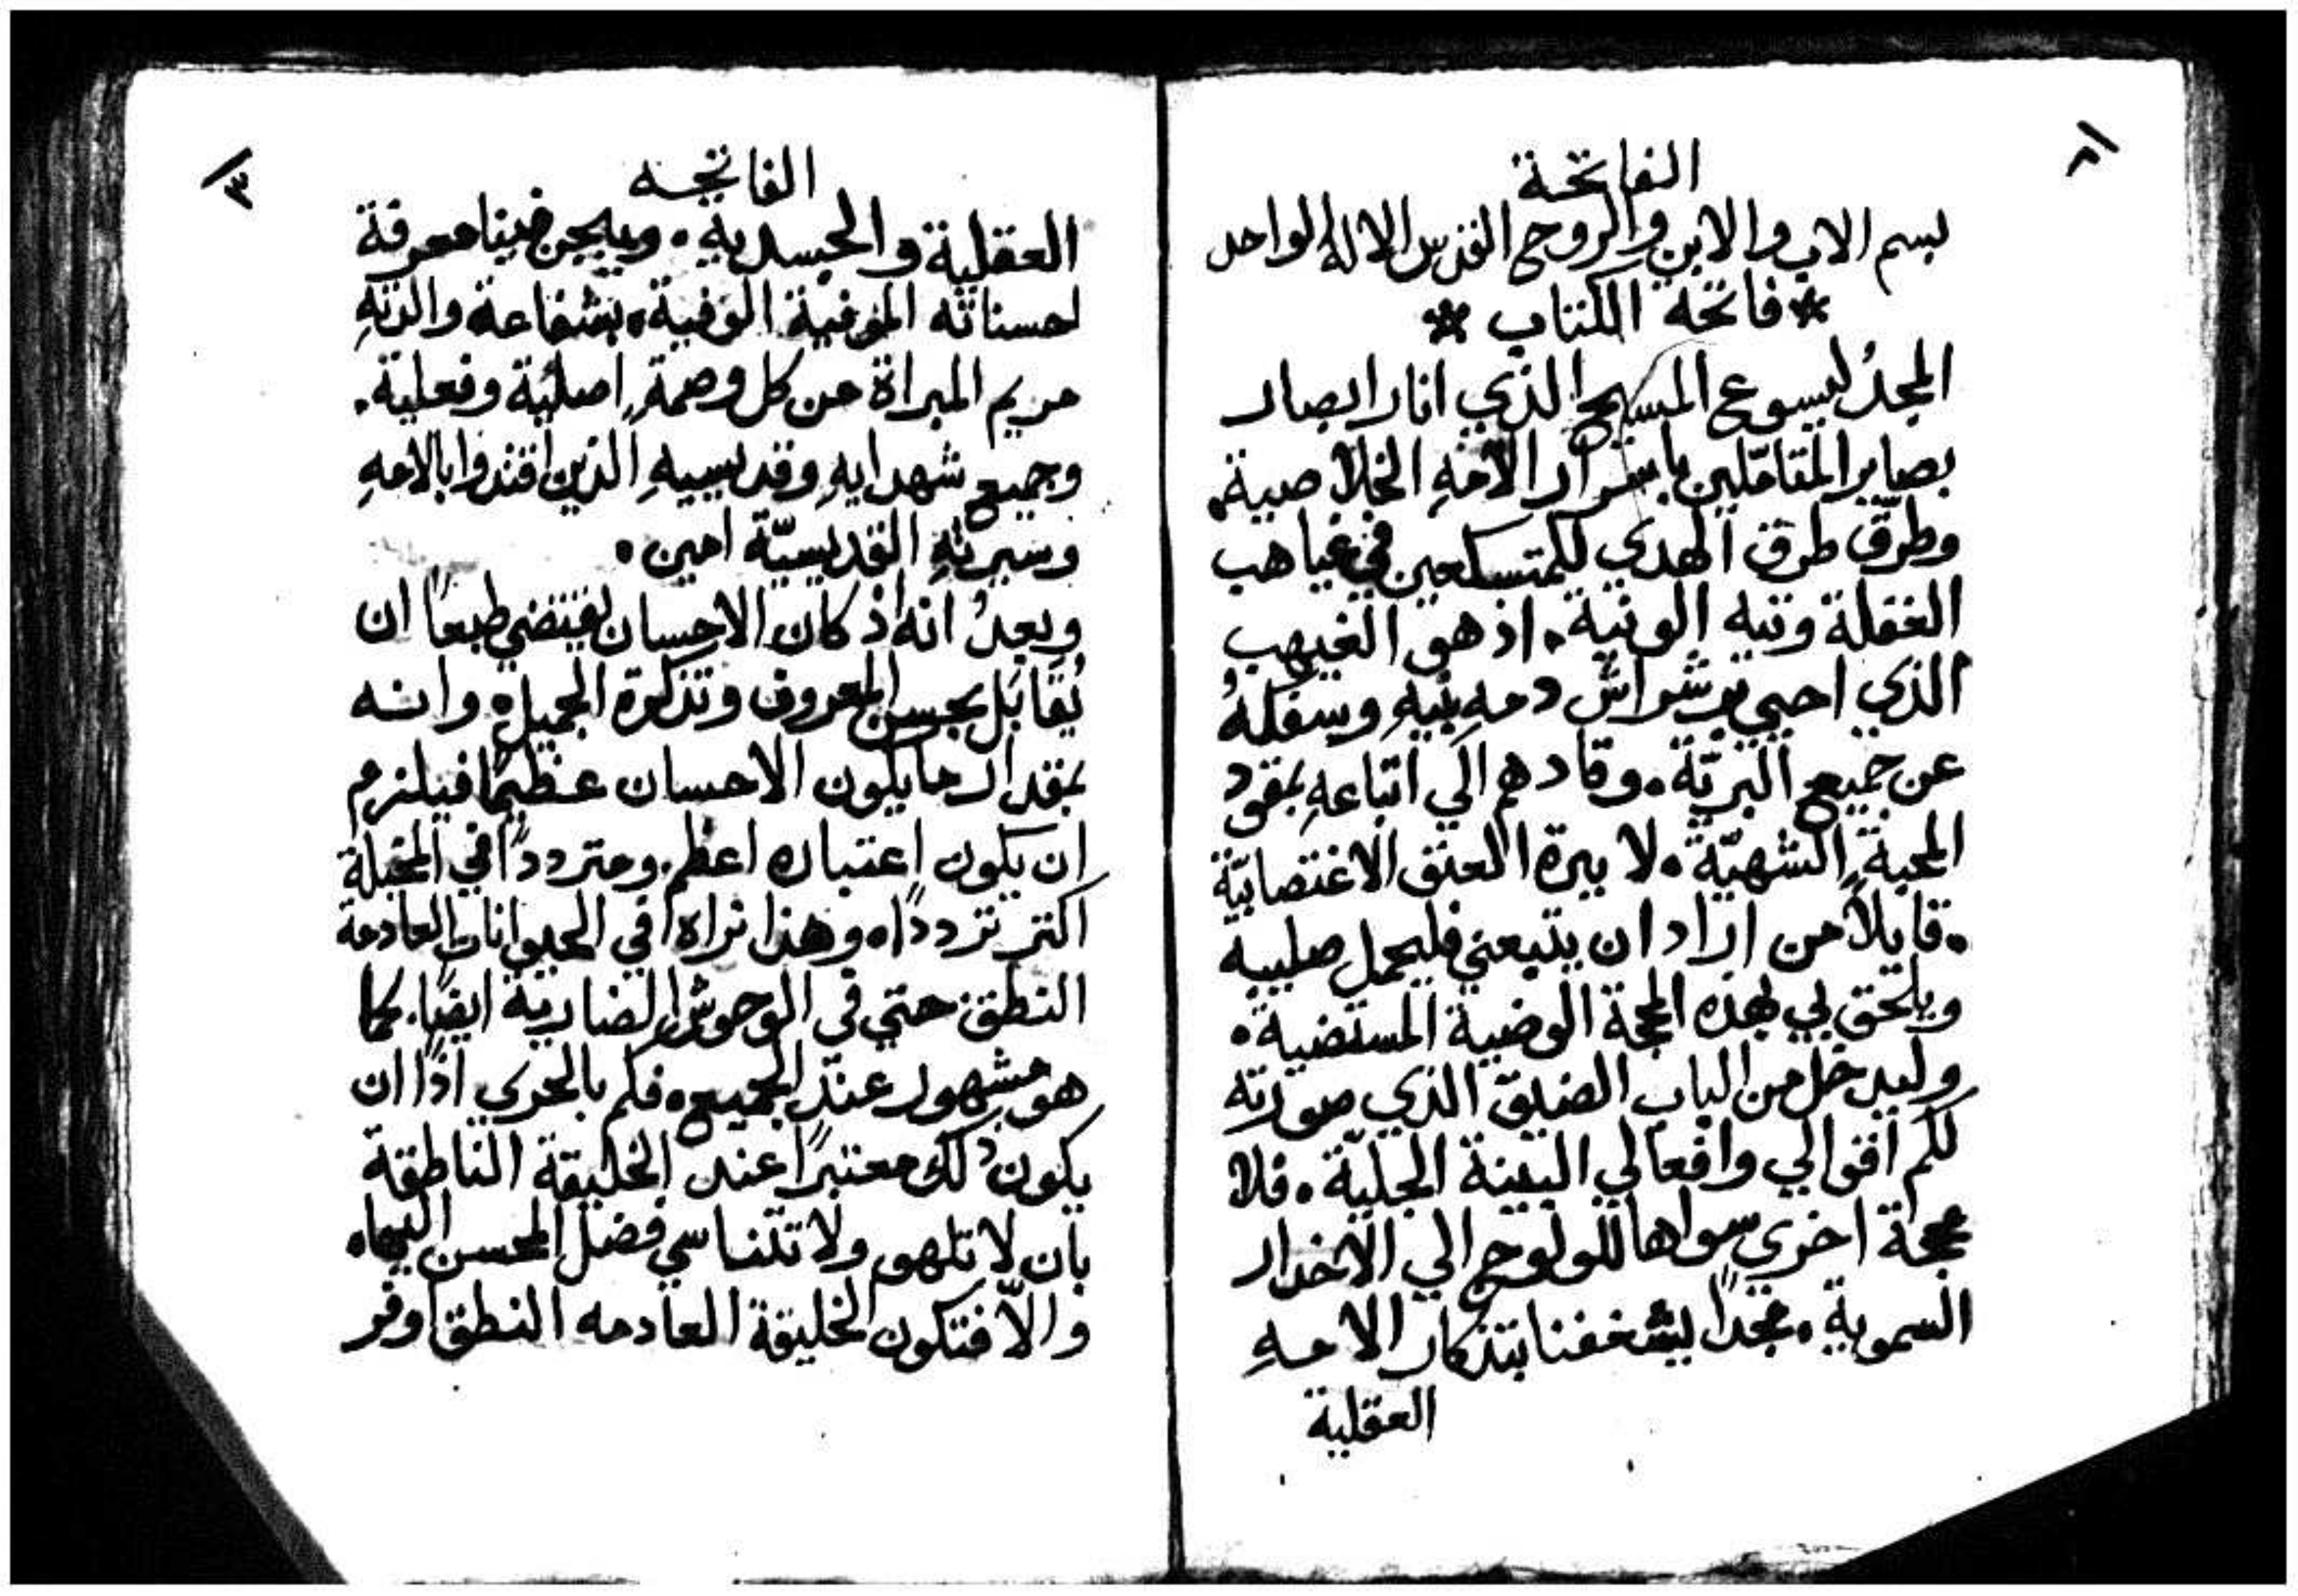 ٢
الفاتحة
بسم الاب والابن والروح القدس الاله الواحد
* فاتحة الكتاب *
المجدُ ليسوع المسيح الذي انار ابصار
بصاير المتاملين باسرار الامهِ الخلاصية.
وطرّق طرق الهدي للمتسكعين في غياهب
الغفلة وتيه الونية. اذ هو
الذي احيي دمهِ بنيهِ
عن جميع البريّة. وقادهم الي اتباعهِ بمقود
المحبة الشهيّة. لا ببرة العنق الاغتصابيّة
. قايلاً من اراد ان يتبعني فليحمل صليبه
ويلحق بي بهذه المحجة الوضية المستضية.
وليدخل من الباب الضيق الذي صورته
لكم اقوالي وافعالي البينة الجليّة. فلا
محجة اخري سواها للولوج الي الاخدار
السموية. مجداً يشغفنا بتذكار الامهِ
العقلية
٣
الفاتحه
العقلية والجسدية. فينا معرفة
احسناته الوفية. بشفاعة والدتهِ
مريم المبراة من كل وصمةٍ اصلية وفعلية.
وجميع شهدايهِ وقديسيهِ الذين اقتدوا بالامهِ
وسيرتهِ القديسيّة امين.
وبعدُ انه اذ كان الاحسان يقتضي طبعاً ان
يُقابَل بحسن المعروف وتذكرة الجميل. وانه
بمقدار ما يكون الاحسان عظيماً فيلزم
ان يكون اعتباره اعظم. ومتردداً في المخيلة
اكثر ترددًا. وهذا نراه في الحيوانات العادمة
النطق حتي في الوحوش الضارية ايضًا. كما
هو مشهور عند الجميع. فكم بالحري اذًا ان
يكون ذلك معتبراً عند الخليقة الناطقة
بان لا تلهو ولا تتناسي فضل المحسن اليها.
والاّ فتكون الخليقة العادمه النطق اوفر